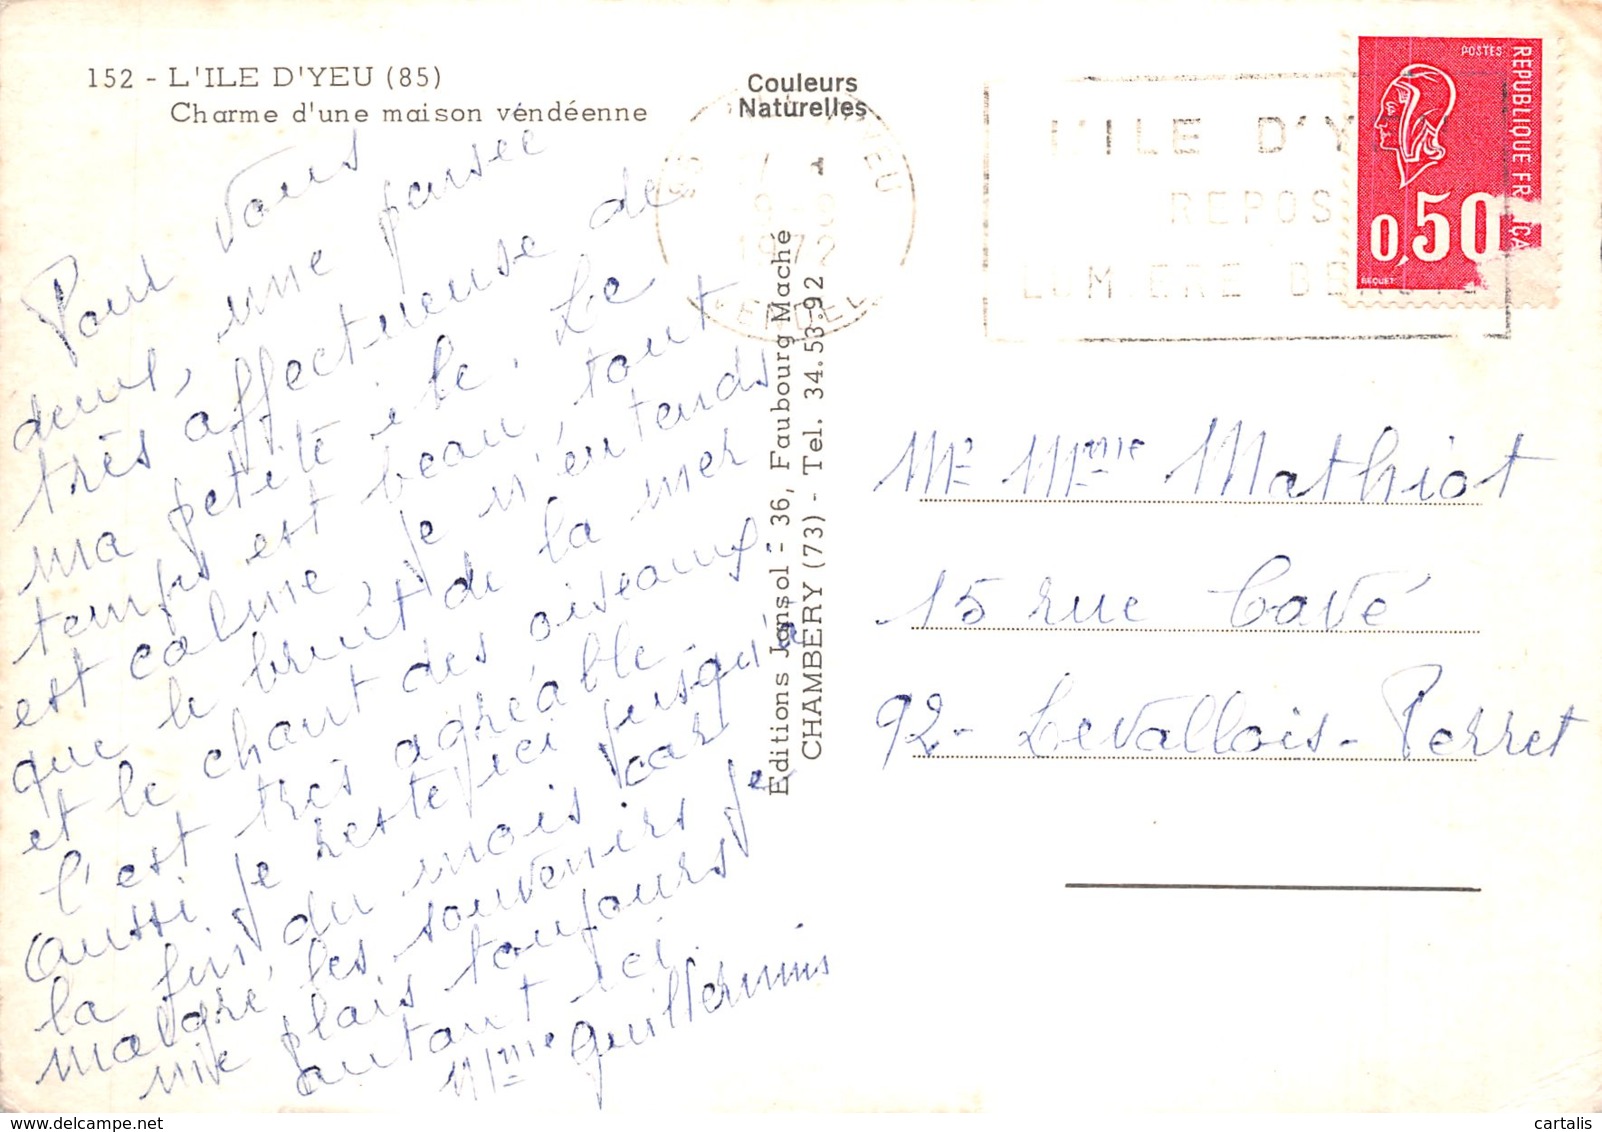 152 - L'ILE D'YEU (85)
Charme d'une maison véndéenne
Couleurs
Naturelles
Pour vous
deux, une pensée
très affectueuse de
ma petite île. Le
temps est beau, tout
est calme, je n'entends
que le bruit de la mer
et le chant des oiseaux.
c'est très agréable.
Aussi je reste ici jusqu'à
la fin du mois car
malgré les souvenirs je
me plais toujours
autant ici.
Mme Guillermins
Editions Jansol - 36, Faubourg Maché
CHAMBÉRY (73) - Tel. 34.53.92
YEU
1972
VENDEE
L'ILE D'Y
REPOS
LUMIERE
POSTES
REPUBLIQUE FR ÇA
0,50
BEQUET
Mr Mme Mathiot
15 rue Cavé
92 - Levallois-Perret
cartalis
www.delcampe.net